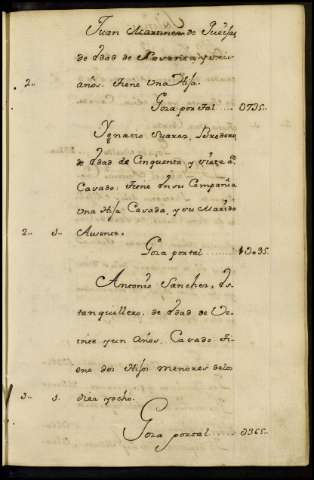 Juan Martinez de
de Edad de Noventa, y seis
2.. años. Tiene una Hija.
Goza por tal .... 0735.
Ygnacio Suarez,
de Edad de Cinquenta, y siete a.s
Casado. Tiene en su Compañia
una Hija Casada, y su Marido
2.. s. Ausente.
Goza por tal ........
Antonio Sanchez, Es
tanquillero, de Edad de Ve
inte y un años. Casado. Ti
ene dos Hijos menores delos
3.. s. diez y ocho.
Goza por tal ........ 0365.